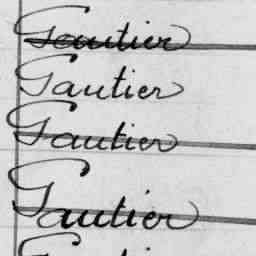 Gautier
Gautier
Gautier
Gautier